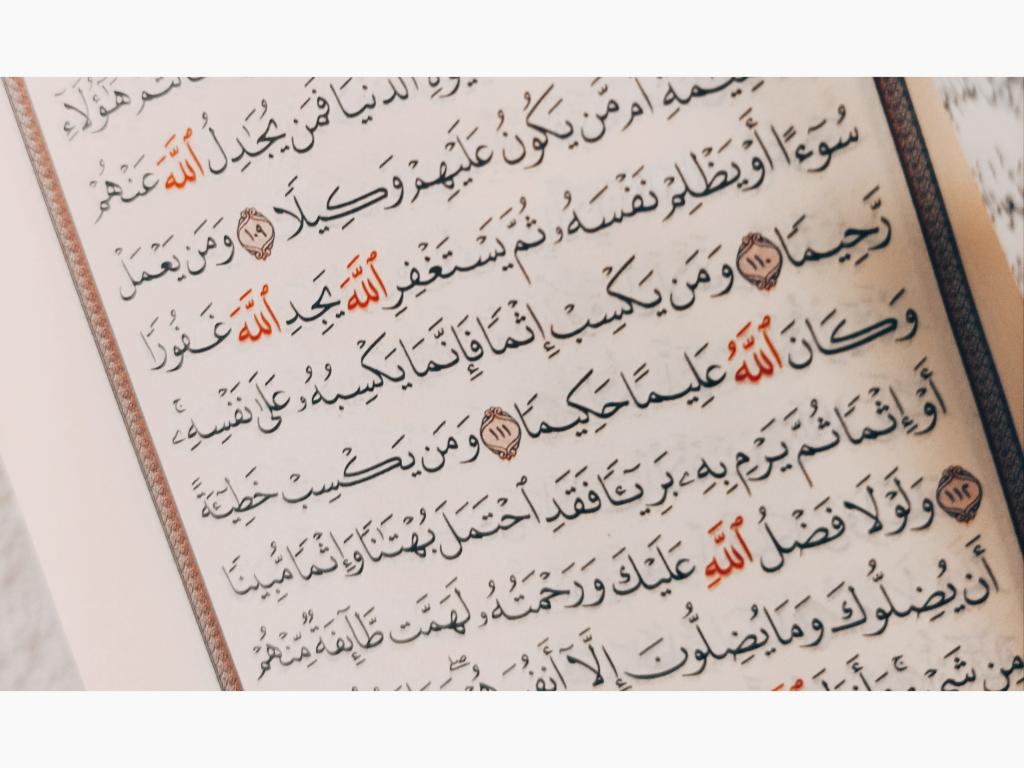 هَٰٓؤُلَآءِ
ٱلدُّنْيَا فَمَن يُجَٰدِلُ ٱللَّهَ عَنْهُمْ
أَم مَّن يَكُونُ عَلَيْهِمْ وَكِيلًا ١٠٩ وَمَن يَعْمَلْ
سُوٓءًا أَوْ يَظْلِمْ نَفْسَهُۥ ثُمَّ يَسْتَغْفِرِ ٱللَّهَ يَجِدِ ٱللَّهَ غَفُورًا
رَّحِيمًا ١١٠ وَمَن يَكْسِبْ إِثْمًا فَإِنَّمَا يَكْسِبُهُۥ عَلَىٰ نَفْسِهِۦ ۚ
وَكَانَ ٱللَّهُ عَلِيمًا حَكِيمًا ١١١ وَمَن يَكْسِبْ خَطِيٓـَٔةً
أَوْ إِثْمًا ثُمَّ يَرْمِ بِهِۦ بَرِيٓـًٔا فَقَدِ ٱحْتَمَلَ بُهْتَٰنًا وَإِثْمًا مُّبِينًا
١١٢ وَلَوْلَا فَضْلُ ٱللَّهِ عَلَيْكَ وَرَحْمَتُهُۥ لَهَمَّت طَّآئِفَةٌ مِّنْهُمْ
أَن يُضِلُّوكَ وَمَا يُضِلُّونَ إِلَّآ
مِن